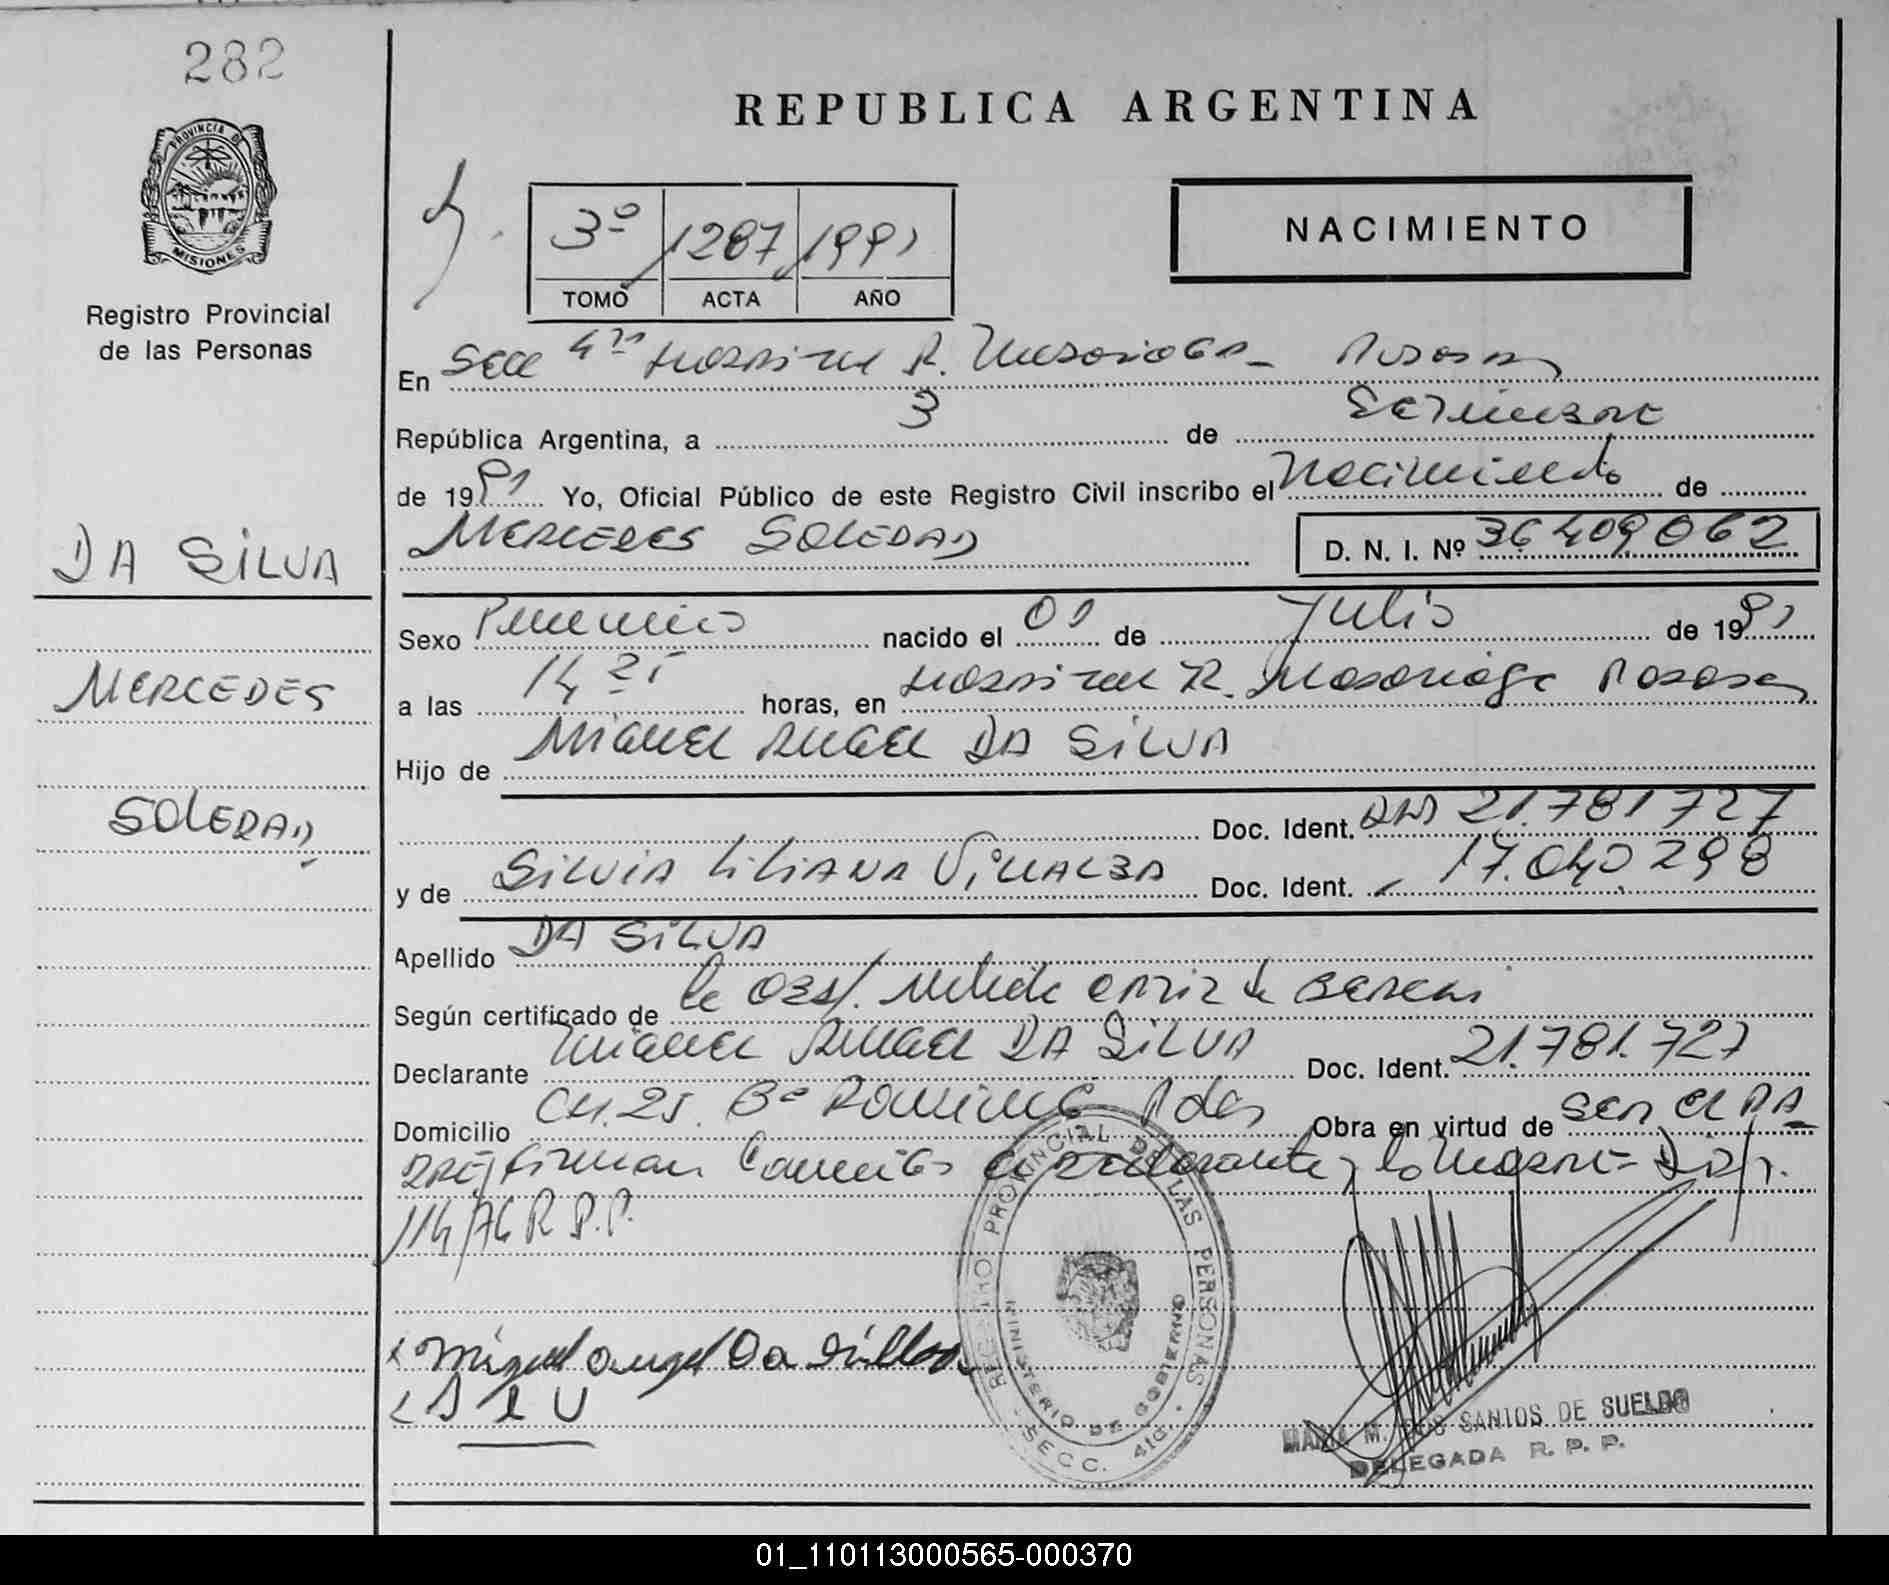 282
REPUBLICA ARGENTINA
PROVINCIA DE MISIONES
Registro Provincial
de las Personas
3º 1287 1991
TOMO ACTA AÑO
NACIMIENTO
En Secc 4ta Hospital R. Madariaga - Posadas
República Argentina, a 3 de Setiembre
de 1991 Yo, Oficial Público de este Registro Civil inscribo el Nacimiento de
MERCEDES SOLEDAD D. N. I. Nº 36409062
DA SILVA
MERCEDES
SOLEDAD
Sexo Femenino nacido el 01 de Julio de 1991
a las 14 25 horas, en Hospital R. Madariaga Posadas
Hijo de MIGUEL ANGEL DA SILVA
Doc. Ident. DNI 21.781727
y de SILVIA LILIANA VILLALBA Doc. Ident. 17.040298
Apellido DA SILVA
Según certificado de la Obst. de
Declarante MIGUEL ANGEL DA SILVA Doc. Ident. 21.781.727
Domicilio CH. 25. Bº Pdas Obra en virtud de ser el PA
DRE, firman el declarante y la madre - Disp.
114/76 R.P.P.
Miguel angel Da Sillva
S L V
REGISTRO PROVINCIAL DE LAS PERSONAS
MINISTERIO DE GOBIERNO
SECC. 4ta.
MARIA M. DOS SANTOS DE SUELDO
DELEGADA R. P. P.
01_110113000565-000370